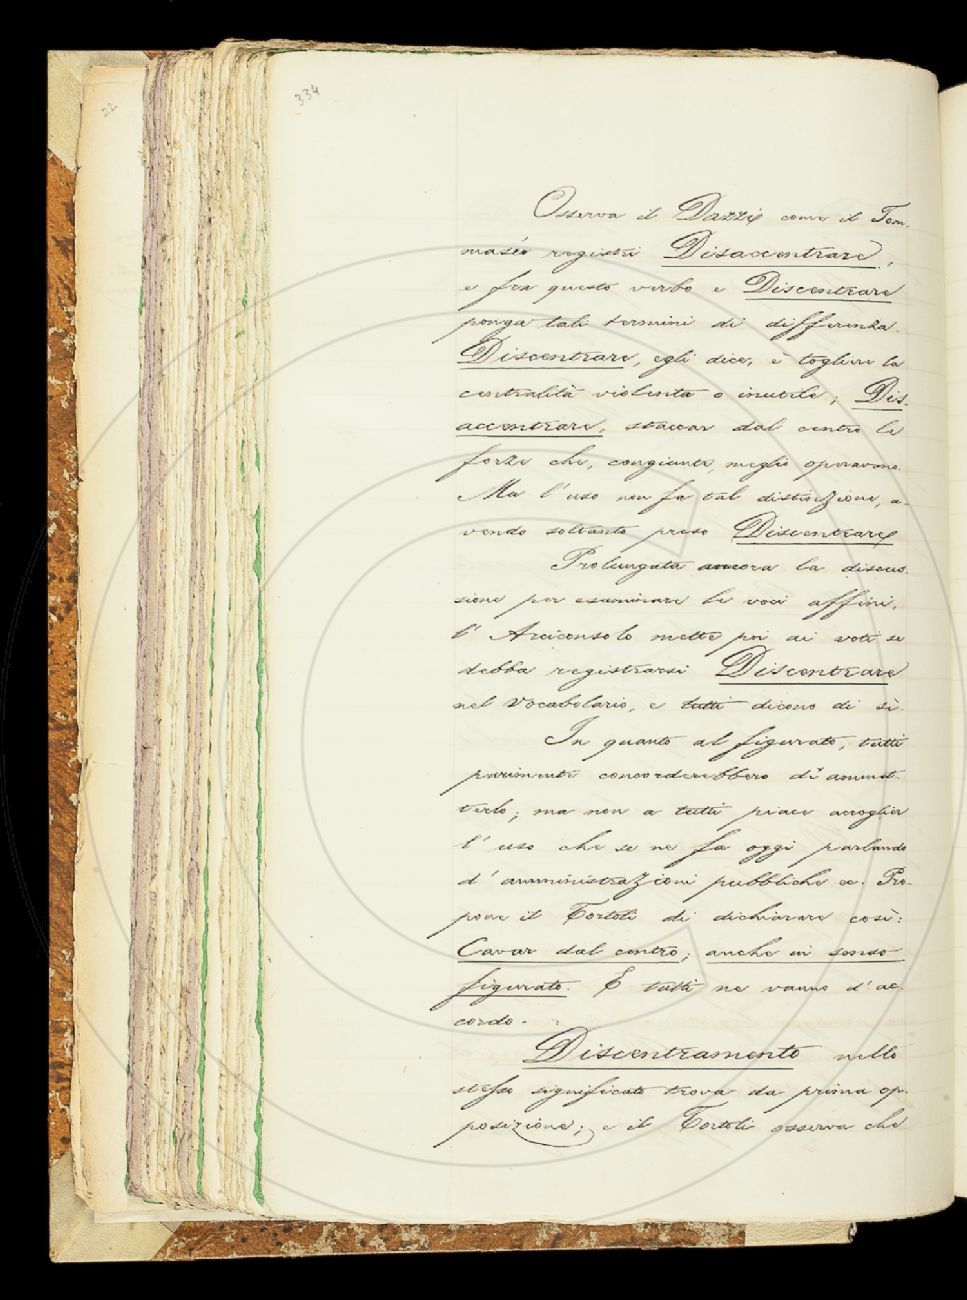 22
334
Osserva il Dazzi come il Tom-
maséo registri Disaccentrare,
e fra questo verbo e Discentrare
ponga tali termini di differenza.
Discentrare, egli dice, è togliere la
centralità violenta o inutile; Dis-
accentrare, staccar dal centro le
forze che, congiunte, meglio operavano.
Ma l'uso non fa tal distinzione, a-
vendo soltanto preso Discentrare.
Prolungata ancora la discus-
sione per esaminare le voci affini,
l'Arciconsolo mette poi ai voti se
debba registrarsi Discentrare
nel Vocabolario, e tutti dicono di sì.
In quanto al figurato, tutti
parimente concorderebbero di ammet-
terlo; ma non a tutti piace accoglier
l'uso che se ne fa oggi parlando
d'amministrazioni pubbliche ec. Pro-
pone il Tortoli di dichiarare così:
Cavar dal centro; anche in senso
figurato. E tutti ne vanno d'ac-
cordo.
Discentramento nello
stesso significato trova da prima op-
posizione; e il Tortoli osserva che